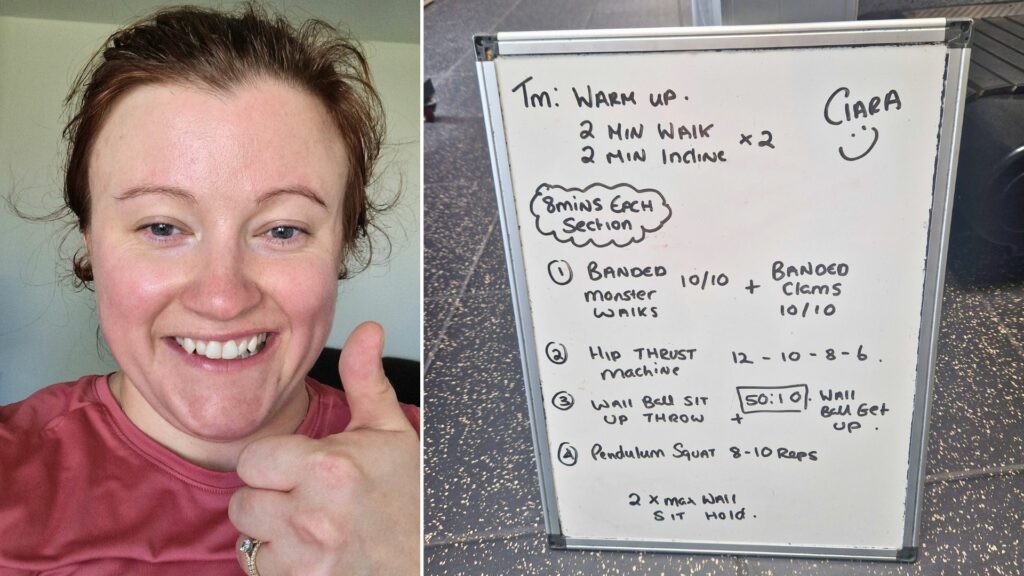 Tm: WARM UP.
CIARA
2 MIN WALK
2 MIN INCLINE x2
8 MINS EACH
SECTION
1 BANDED 10/10 + BANDED
MONSTER CLAMS
WALKS 10/10
2 HIP THRUST 12 - 10 - 8 - 6.
MACHINE
3 WALL BALL SIT 50:10. WALL
UP THROW + BALL GET
UP.
4 PENDULUM SQUAT 8-10 REPS
2 x MAX WALL
SIT HOLD.